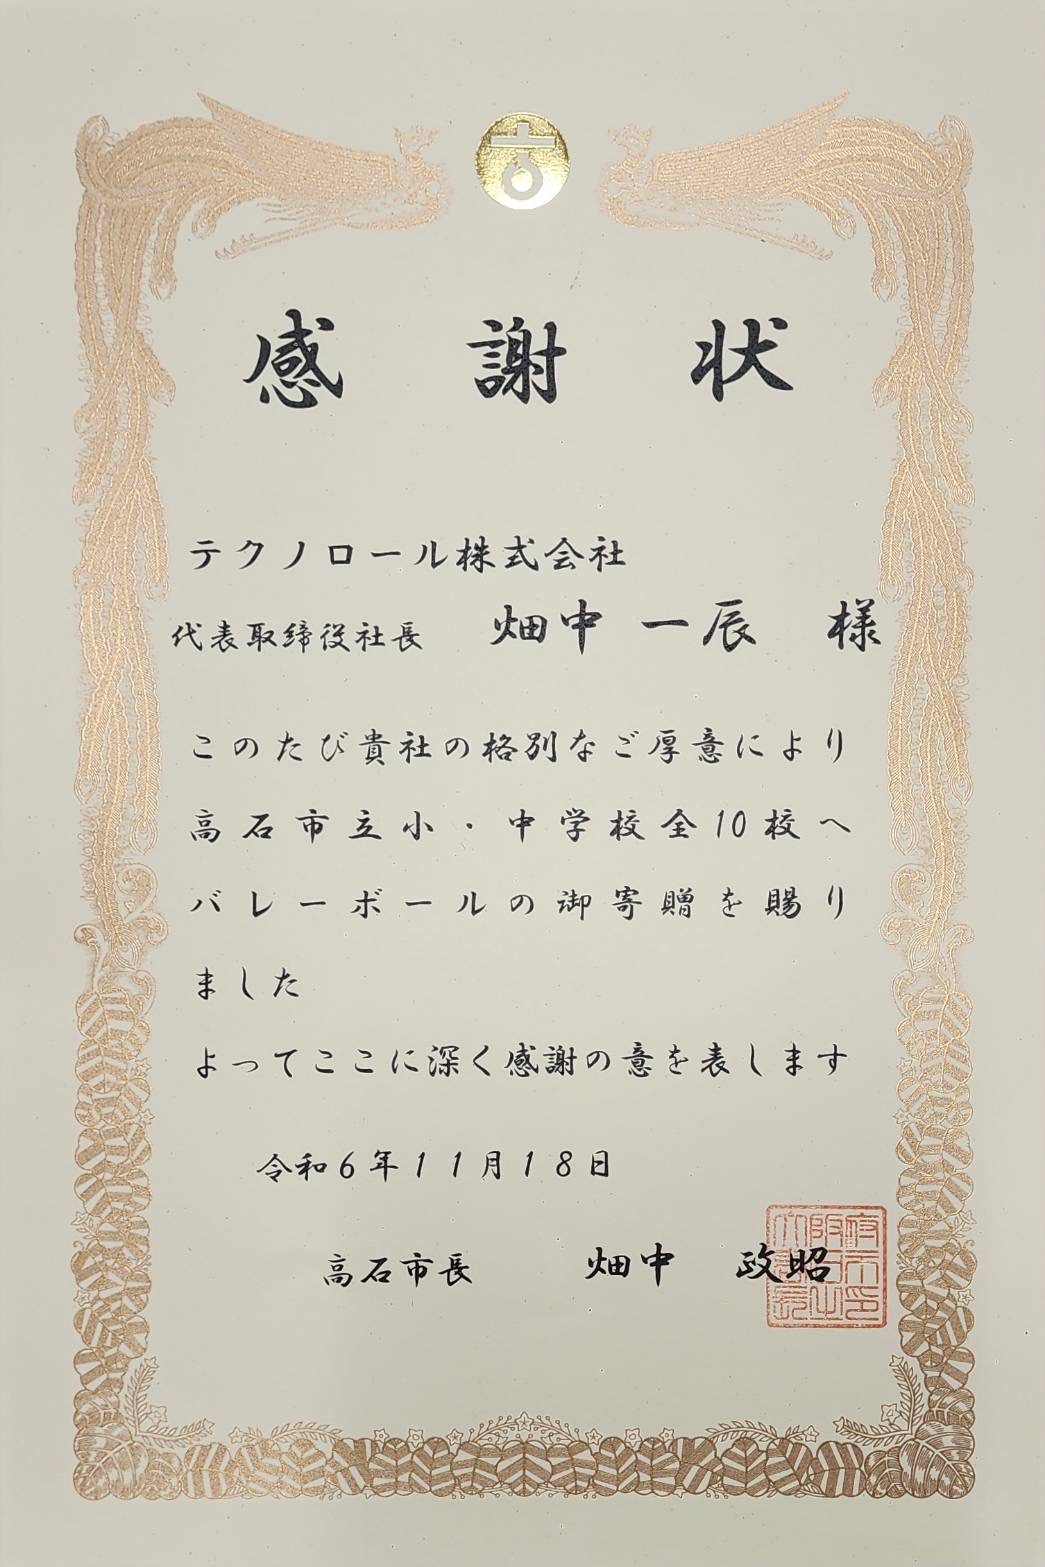 感謝状
テクノロール株式会社
代表取締役社長 畑中 一辰 様
このたび貴社の格別なご厚意により
高石市立小・中学校全10校へ
バレーボールの御寄贈を賜り
ました
よってここに深く感謝の意を表します
令和6年11月18日
高石市長 畑中 政昭